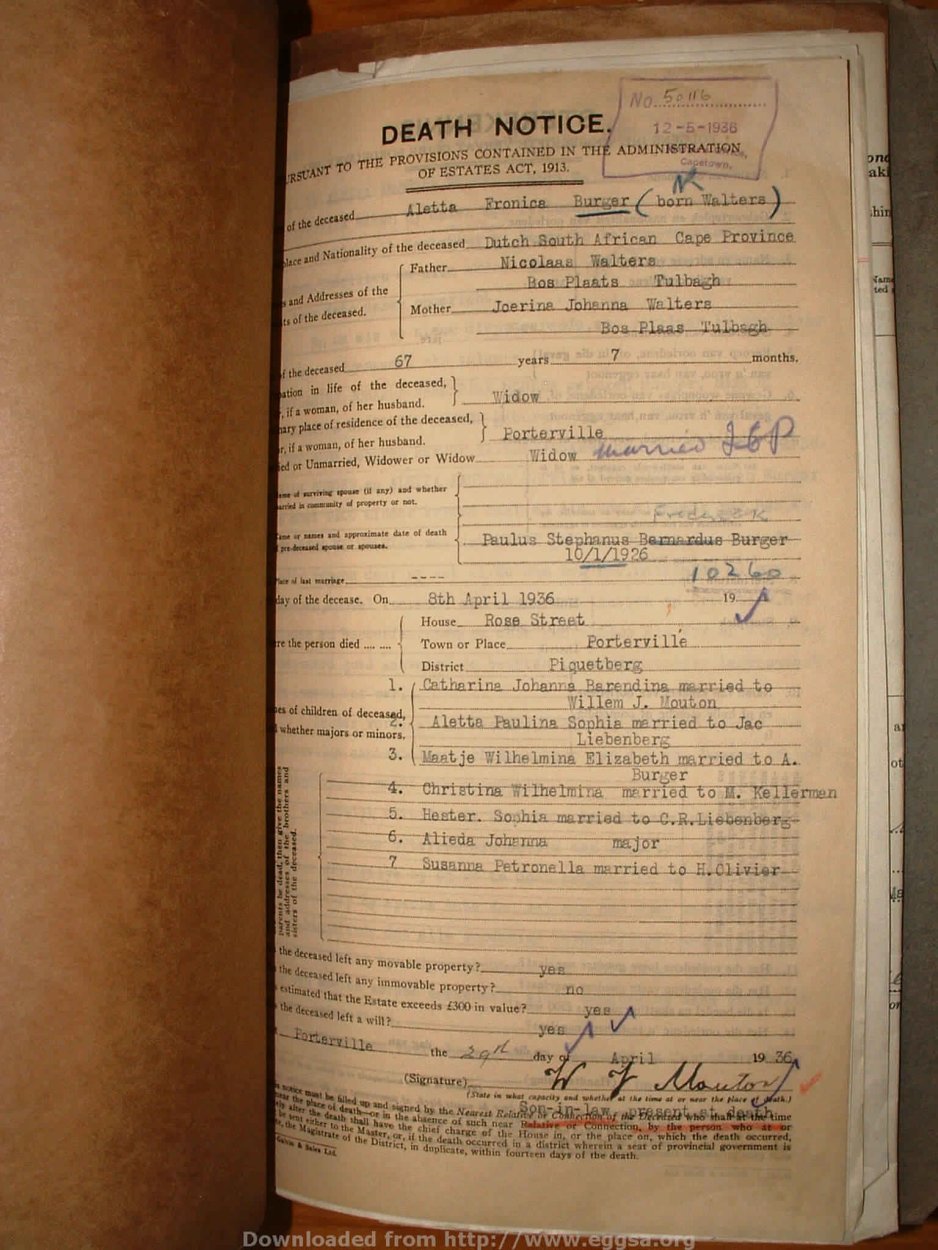 No. 50116
12-5-1936
Capetown.
DEATH NOTICE.
PURSUANT TO THE PROVISIONS CONTAINED IN THE ADMINISTRATION
OF ESTATES ACT, 1913.
of the deceased Aletta Fronica Burger (born Walters)
place and Nationality of the deceased Dutch South African Cape Province
Father Nicolaas Walters
Bos Plaats Tulbagh
s and Addresses of the
ts of the deceased.
Mother Joerina Johanna Walters
Bos Plaas Tulbagh
of the deceased 67 years 7 months.
ation in life of the deceased,
, if a woman, of her husband. Widow
nary place of residence of the deceased,
r, if a woman, of her husband. Porterville
ied or Unmarried, Widower or Widow Widow married I C P
ame of surviving spouse (if any) and whether
arried in community of property or not.
Frederik
ame or names and approximate date of death
pre-deceased spouse or spouses. Paulus Stephanus Bernardus Burger
10/1/1926
Place of last marriage ---- 10260
day of the decease. On 8th April 1936 19
House Rose Street
re the person died .... .... Town or Place Porterville
District Piquetberg
1. Catharina Johanna Barendina married to
Willem J. Mouton
es of children of deceased,
whether majors or minors.
2. Aletta Paulina Sophia married to Jac
Liebenberg
3. Maatje Wilhelmina Elizabeth married to A.
Burger
4. Christina Wilhelmina married to M. Kellerman
5. Hester. Sophia married to C.R.Liebenberg
6. Alieda Johanna major
7 Susanna Petronella married to H.Olivier
parents be dead, then give the names
and addresses of the brothers and
sisters of the deceased.
the deceased left any movable property? yes
the deceased left any immovable property? no
estimated that the Estate exceeds £300 in value? yes
the deceased left a will? yes
Porterville the 29th day of April 19 36
(Signature) W J Mouton
(State in what capacity and whether at the time at or near the place of death.)
Son-in-law present at death
notice must be filled up and signed by the Nearest Relative or Connection of the Deceased who shall at the time
near the place of death—or in the absence of such near Relative or Connection, by the person who at or
ly after the death shall have the chief charge of the House in, or the place on, which the death occurred,
be sent either to the Master, or, if the death occurred in a district wherein a seat of provincial government is
the Magistrate of the District, in duplicate, within fourteen days of the death.
& Sales Ltd.
Downloaded from http://www.eggsa.org